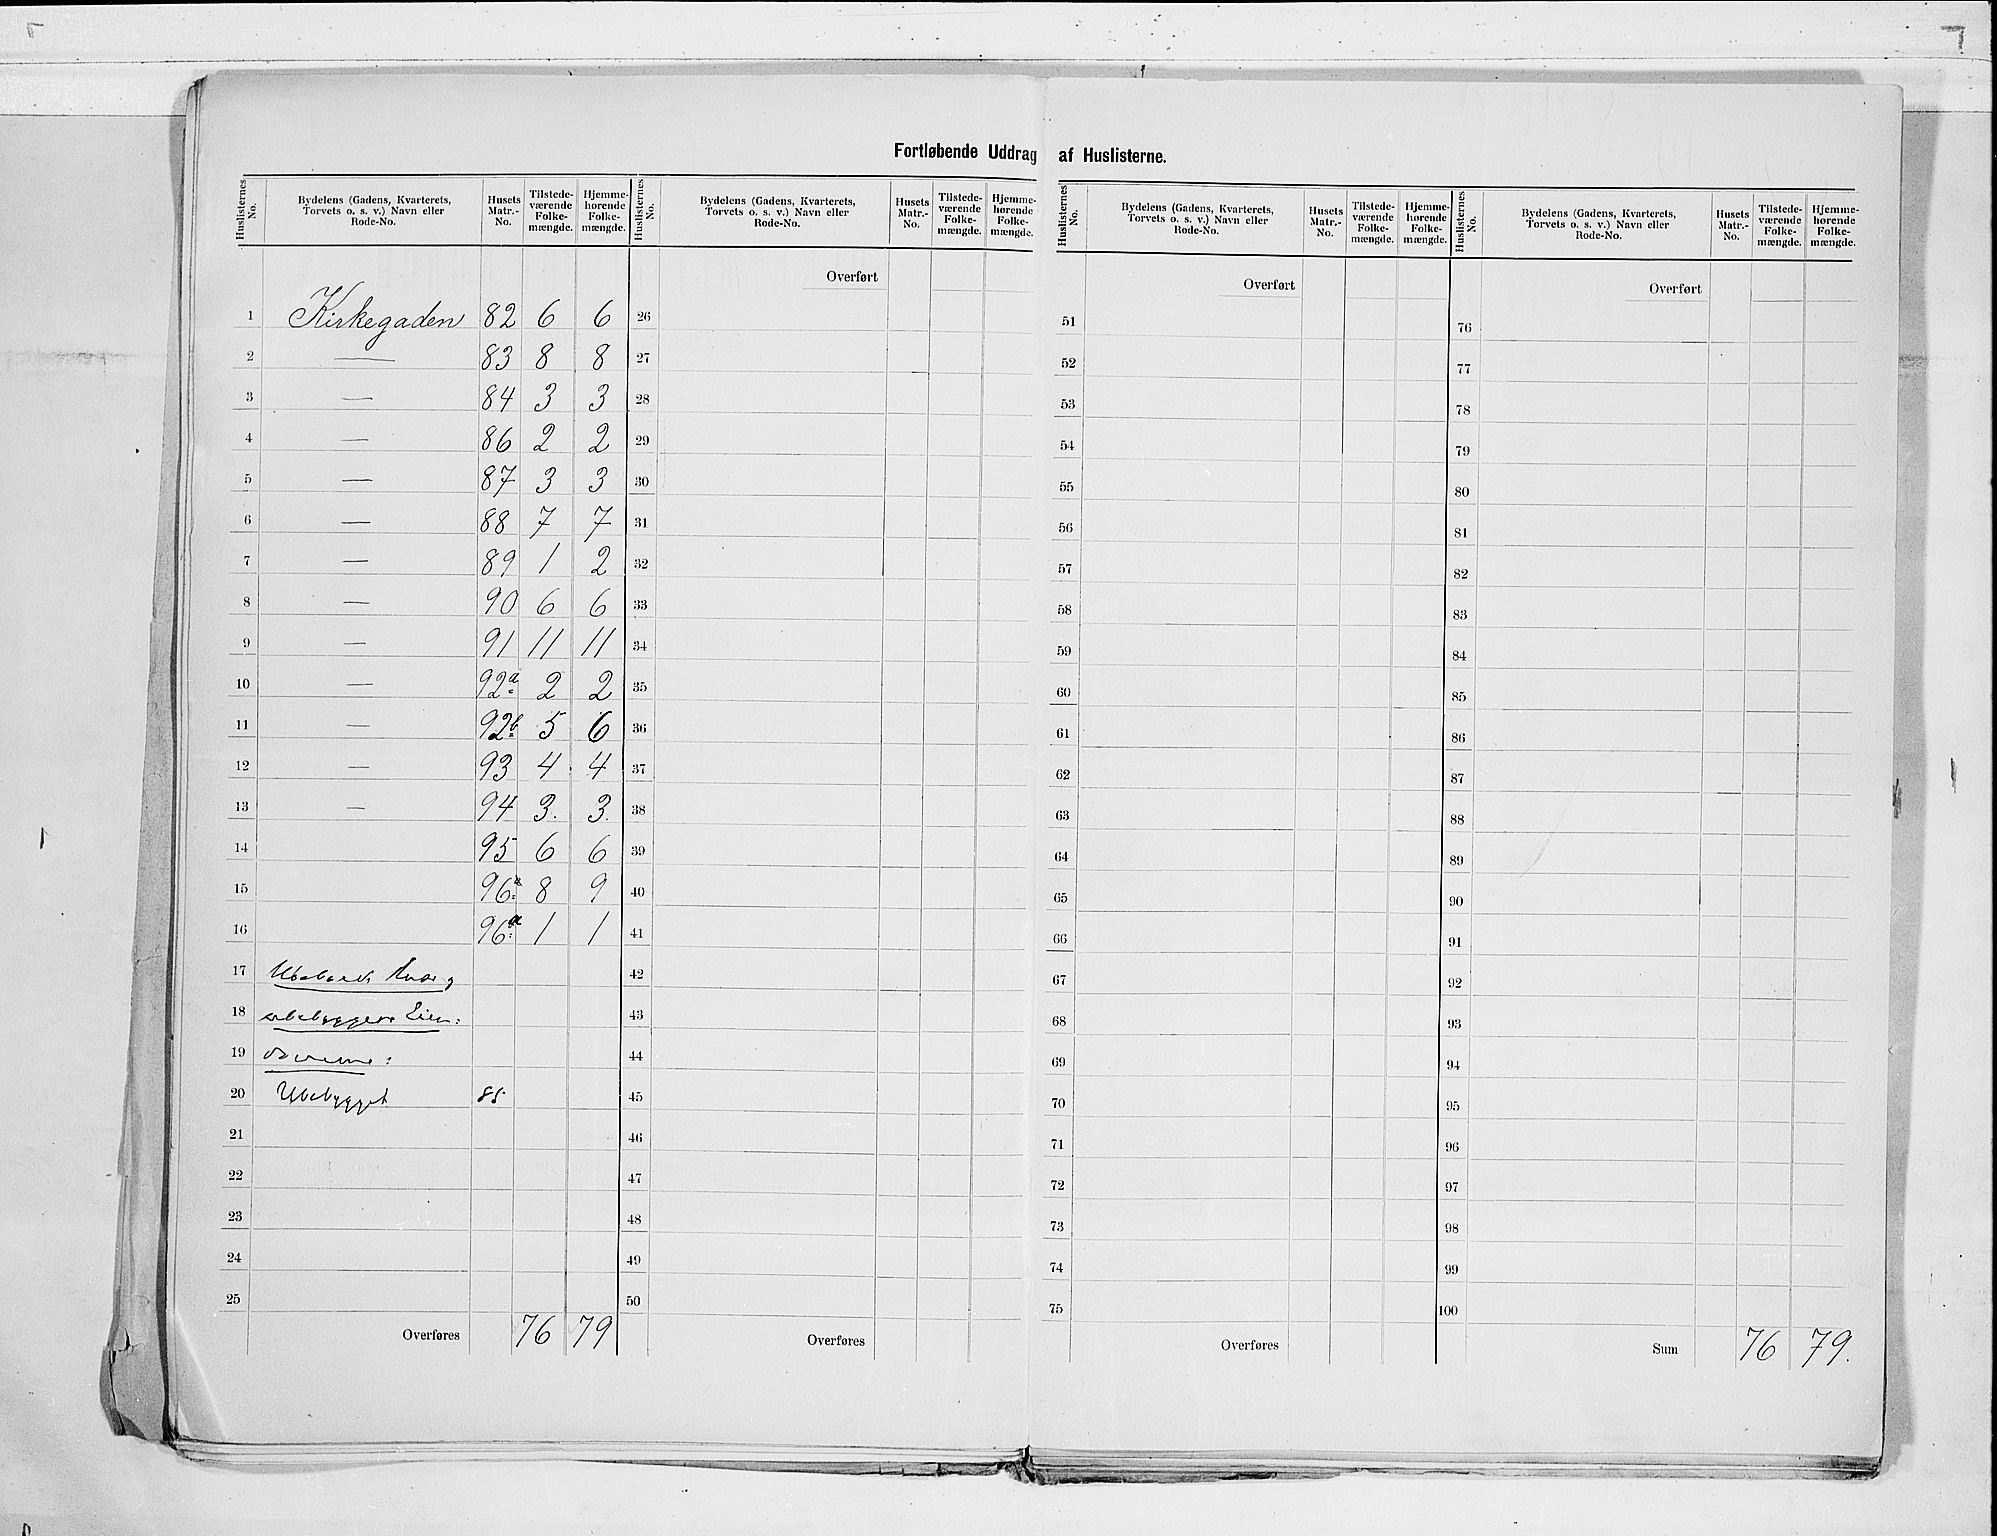 Fortløbende Uddrag af Huslisterne.
Huslisternes No. Bydelens (Gadens, Kvarterets, Torvets o. s. v.) Navn eller Rode-No. Husets Matr.-No. Tilstedeværende Folkemængde. Hjemmehørende Folkemængde.
1 Kirkegaden 82 6 6
2 — 83 8 8
3 — 84 3 3
4 — 86 2 2
5 — 87 3 3
6 — 88 7 7
7 — 89 1 2
8 — 90 6 6
9 — 91 11 11
10 — 92a 2 2
11 — 92b 5 6
12 — 93 4 4
13 — 94 3. 3.
14 95 6 6
15 96a 8 9
16 96a 1 1
17
18
19
20 Ubebygget 85
21
22
23
24
25
Overføres 76 79
Huslisternes No. Bydelens (Gadens, Kvarterets, Torvets o. s. v.) Navn eller Rode-No. Husets Matr.-No. Tilstedeværende Folkemængde. Hjemmehørende Folkemængde.
Overført
26
27
28
29
30
31
32
33
34
35
36
37
38
39
40
41
42
43
44
45
46
47
48
49
50
Overføres
Huslisternes No. Bydelens (Gadens, Kvarterets, Torvets o. s. v.) Navn eller Rode-No. Husets Matr.-No. Tilstedeværende Folkemængde. Hjemmehørende Folkemængde.
Overført
51
52
53
54
55
56
57
58
59
60
61
62
63
64
65
66
67
68
69
70
71
72
73
74
75
Overføres
Huslisternes No. Bydelens (Gadens, Kvarterets, Torvets o. s. v.) Navn eller Rode-No. Husets Matr.-No. Tilstedeværende Folkemængde. Hjemmehørende Folkemængde.
Overført
76
77
78
79
80
81
82
83
84
85
86
87
88
89
90
91
92
93
94
95
96
97
98
99
100
Sum 76 79.